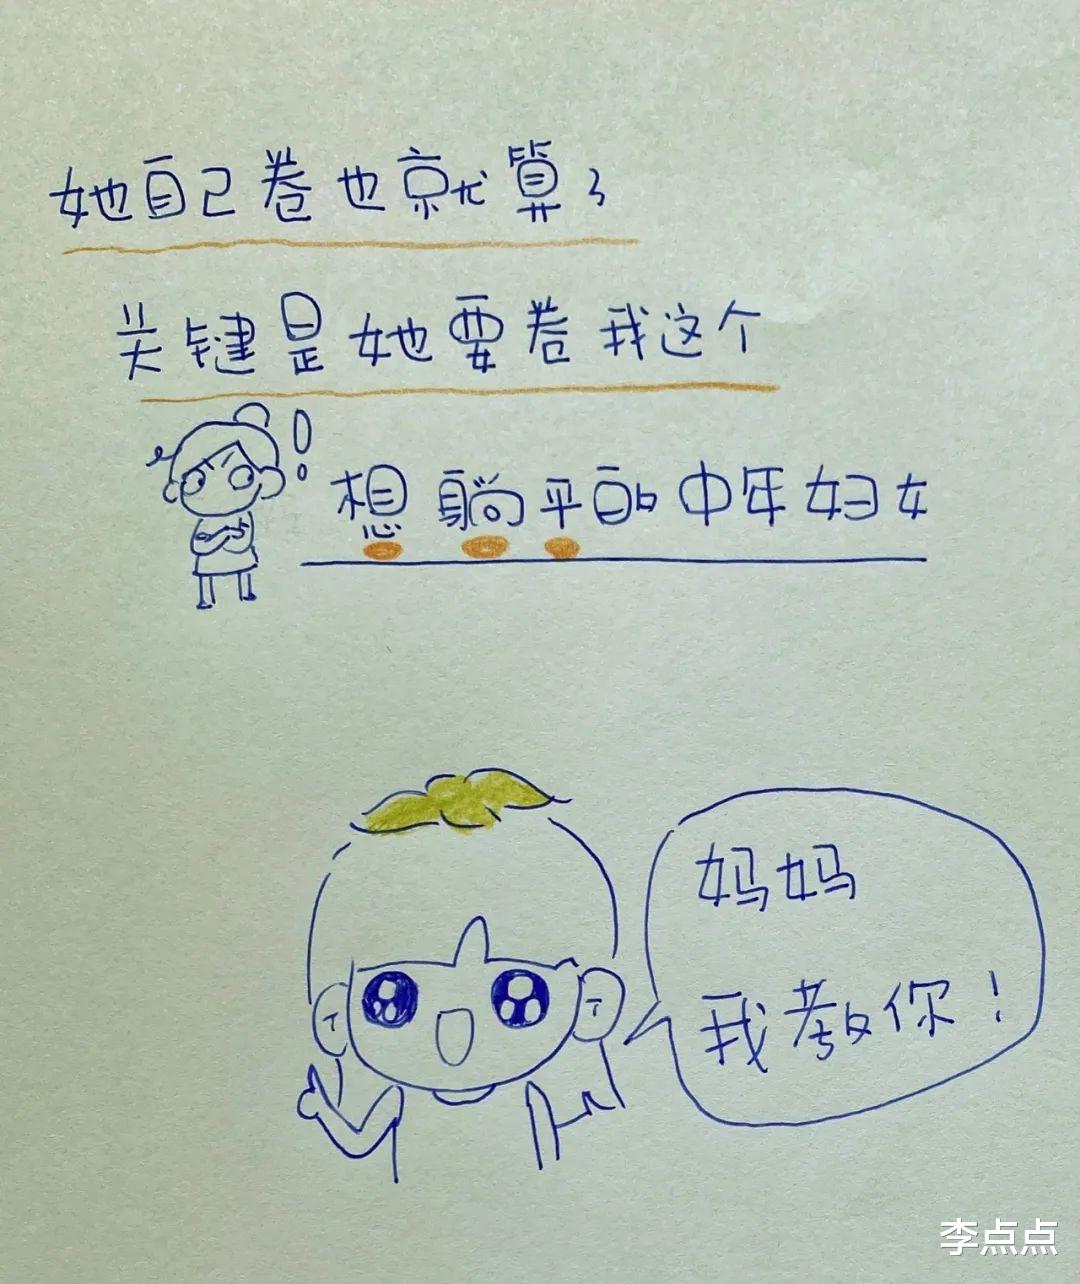 她自己卷也就算了
关键是她要卷我这个
想躺平的中年妇女
妈妈
我教你！
李点点